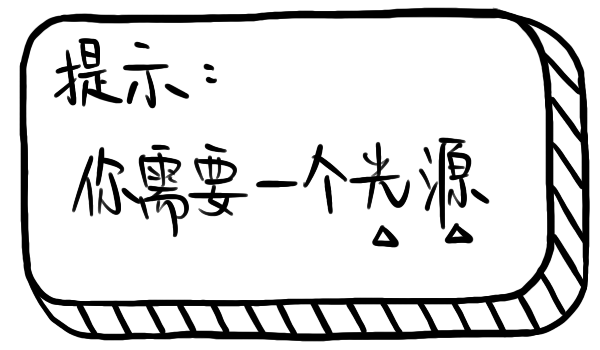 提示：
你需要一个光源